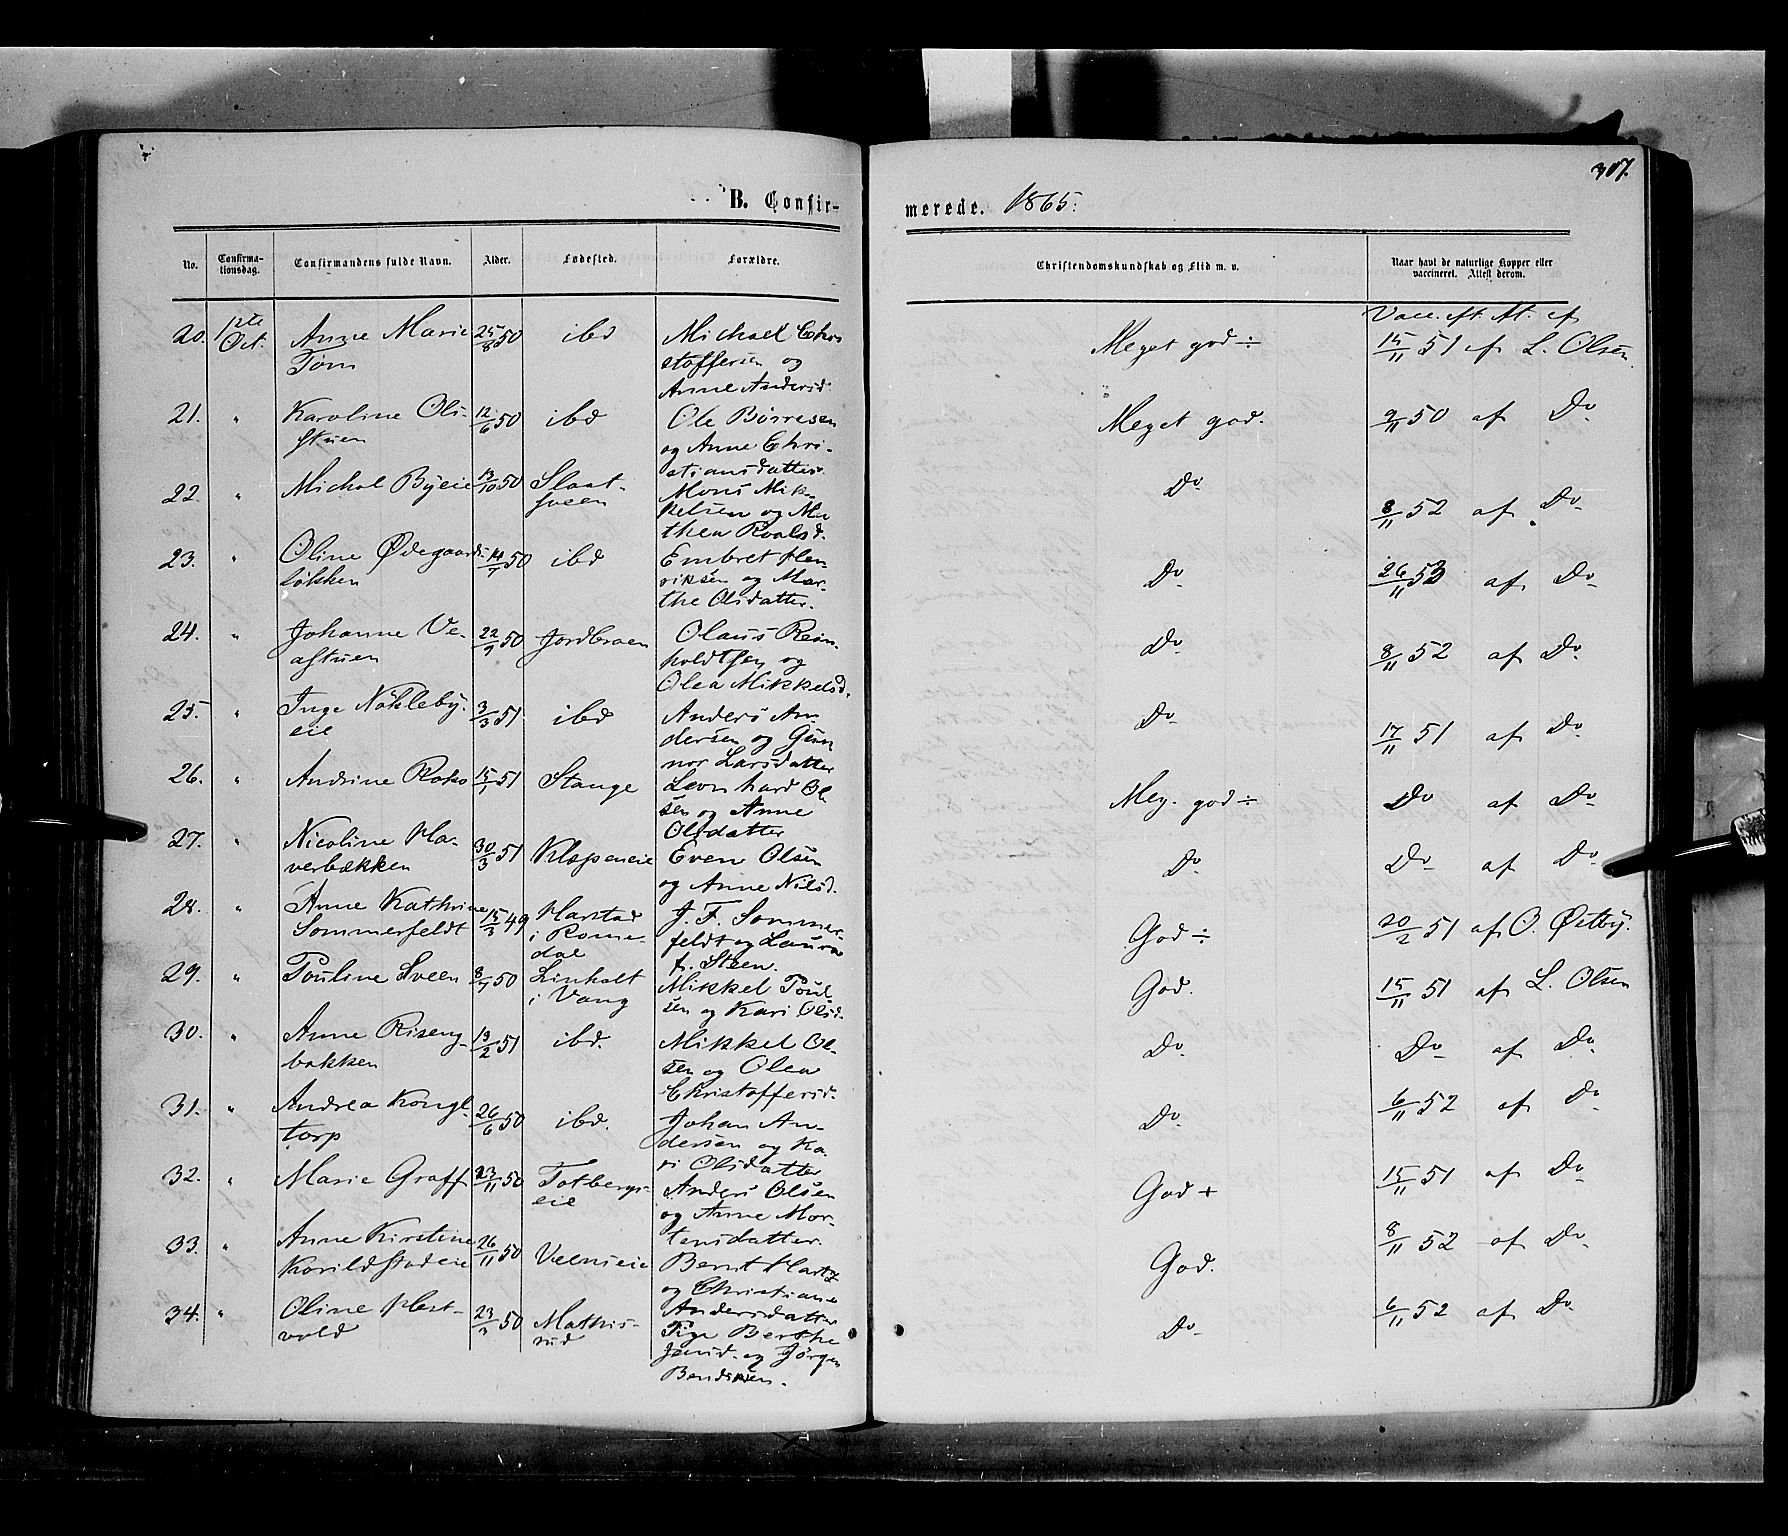 307.
B. Confirmerede. 1865.
No.
Confirma-
tionsdag.
Confirmandens fulde Navn.
Alder.
Fødested.
Forældre.
Christendomskundskab og Flid m. v.
Naar havt de naturlige Kopper eller
vaccineret. Attest derom.
20. 1ste Oct. Anne Marie 25/8 50 ibd Michael Chri
Tøm stoffersen og
Anne Andersd.
Meget god ÷
Vacc. eft. At. af
15/11 51 af L. Olsen
21. " Karoline Ols- 12/6 50 ibd Ole Børresen
stuen og Anne Chri-
stiansdatter.
Meget god. 9/11 50 af Do
22. " Michal Byeie 13/10 50 Slaat- Mons Mik-
sveen kelsen og Ma
thea Roalsd.
Do 8/11 52 af Do
23. " Oline Ødegaards- 14/7 50 ibd Embret Hen-
løkken riksen og Mar-
the Olsdatter.
Do 26/11 53 af Do
24. " Johanne Ve- 22/9 50 Jordbraen Olaus Rein-
astuen holdtsen og
Olea Mikkelsd.
Do 8/11 52 af Do
25. " Inge Nökleby- 3/3 51 ibd Anders An-
eie dersen og Gun
nor Larsdatter
Do 17/11 51 af Do
26. " Andrine Roko 15/1 51 Stange Leonhard Ol
sen og Anne
Olsdatter
Meg. god ÷ Do af Do
27. " Nicoline Ha- 30/3 51 Klæpaeie Even Olsen
verbækken og Anne Nilsd.
Do Do af Do
28. " Anne Kathrine 15/3 49 Harstad J. F. Sommer-
Sommerfeldt i Rome- feldt og Laura
dal f. Steen.
God ÷ 20/2 51 af O. Østby.
29. " Pouline Sveen 8/7 50 Linholt Mikkel Poul
i Vang sen og Kari Olsd.
God. 15/11 51 af L. Olsen
30. " Anne Riseng- 19/2 51 ibd. Mikkel Ol-
bakken sen og Olea
Christoffersd.
Do Do af Do
31. " Andrea Kongl- 26/6 50 ibd. Johan An-
torp dersen og Ka-
ri Olsdatter
Do 6/11 52 af Do
32. " Marie Graff 23/11 50 Totbergs- Anders Olsen
eie og Anne Mor-
tensdatter.
God + 15/11 51 af Do
33. " Anne Kirstine 26/11 50 Velmseie Bernt Hartz
Korildstadeie og Christiane
Andersdatter
God. 8/11 52 af Do
34. " Oline Hest- 23/3 50 Mathis- Pige Berthe
vold rud Jensd. og Jørgen
Bendixen.
Do 6/11 52 af Do